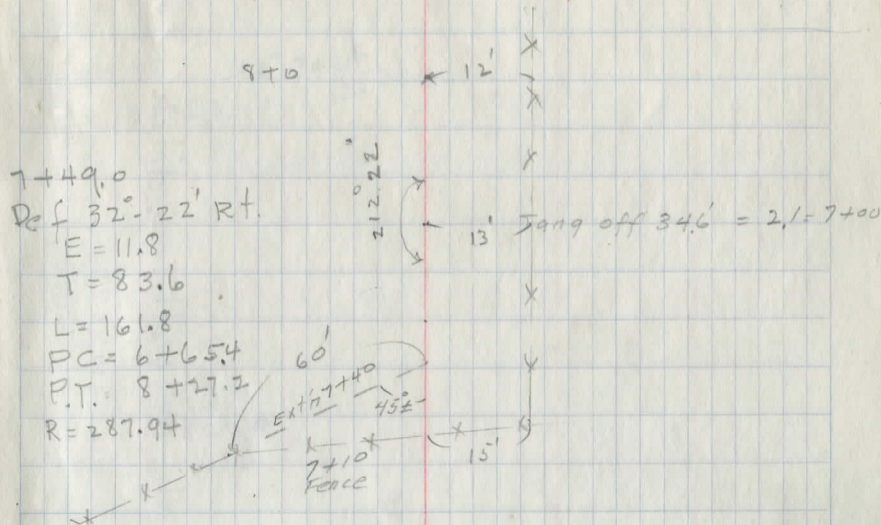 8+0
12'
7+49.0
Def 32°-22' Rt.
E = 11.8
T = 83.6
L = 161.8
PC = 6+65.4
P.T. 8+27.2
R = 287.94
212°.22'
13'
Tang off 34.6' = 2.1 = 7+00
60'
Ext'n 7+40
45°±
7+10
Fence
15'